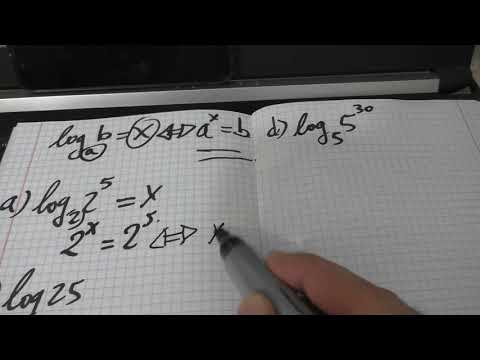 log_a b = x ⇔ a^x = b
a) log_2 2^5 = x
2^x = 2^5 ⇔ x
log 25
d) log_5 5^30